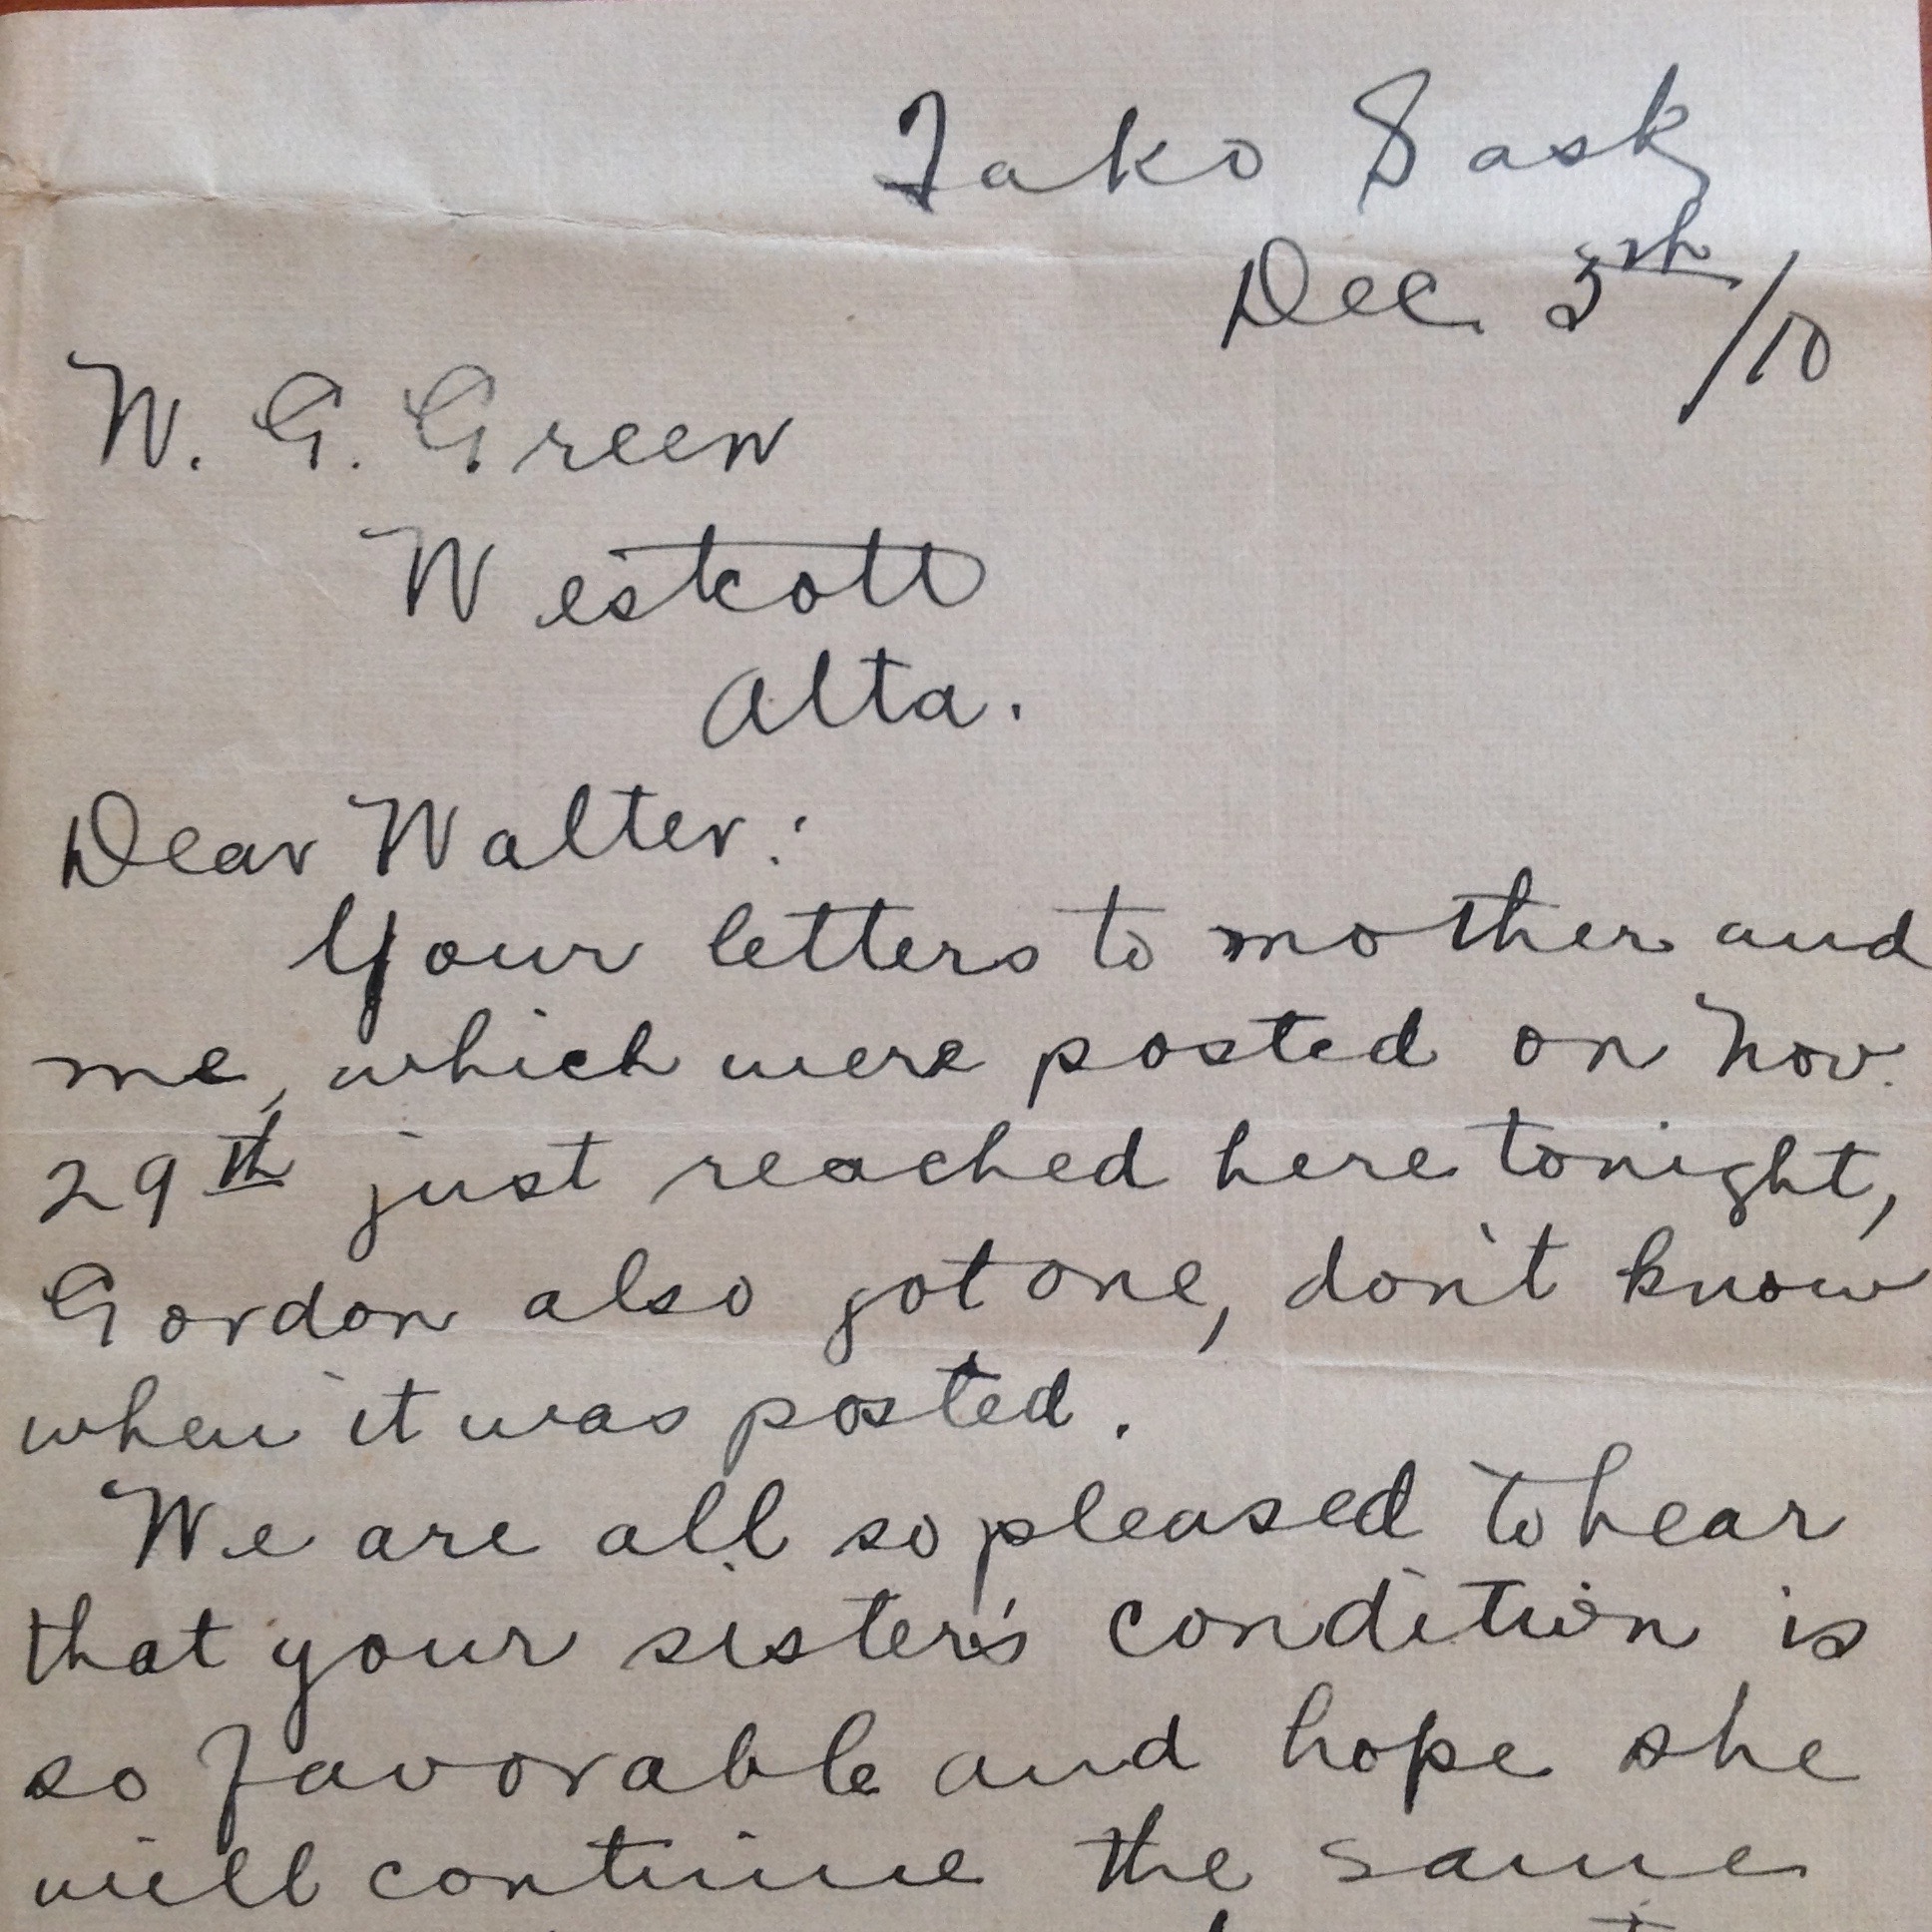 Tako Sask
Dec 5th/10
W. G. Green
Westcott
Alta.
Dear Walter:
Your letters to mother and
me, which were posted on Nov.
29th just reached here tonight,
Gordon also got one, don't know
when it was posted.
We are all so pleased to hear
that your sister's condition is
so favorable and hope she
will continue the same